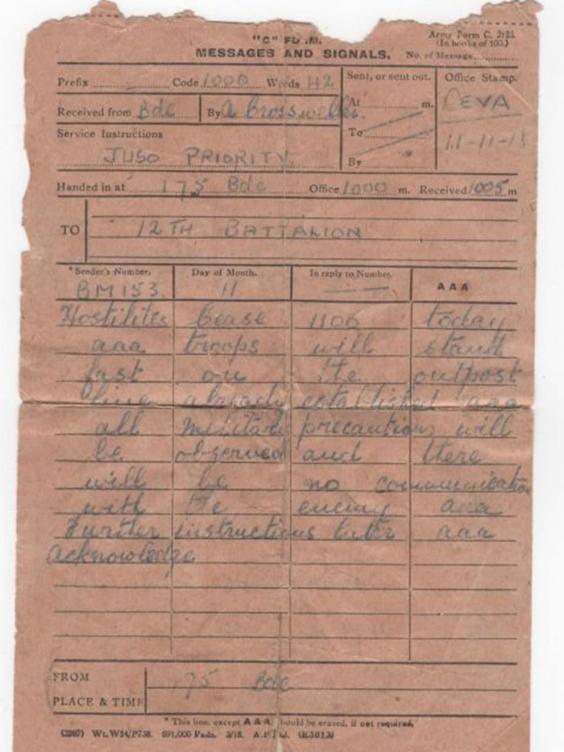 "C" FORM. Army Form C. 2123.
(In books of 100.)
MESSAGES AND SIGNALS. No. of Message
Prefix Code 1000 Words 42 Sent, or sent out. Office Stamp.
Received from Bde By At m.
To
By
CEVA
11-11-18
Service Instructions
JUSO PRIORITY
Handed in at 175 Bde Office 1000 m. Received 1005 m
TO 12TH BATTALION
* Sender's Number. Day of Month. In reply to Number. AAA
BM153. 11
Hostilites cease 1106 today
aaa troops will stand
fast on the outpost
line already established aaa
all military precautions will
be observed and there
will be no communication
with the enemy aaa
Further instructions later aaa
acknowledge
FROM 175 Bde
PLACE & TIME
* This line, except AAA, should be erased, if not required.
Wt. W54/P738. 691,000 Pads. 3/18.